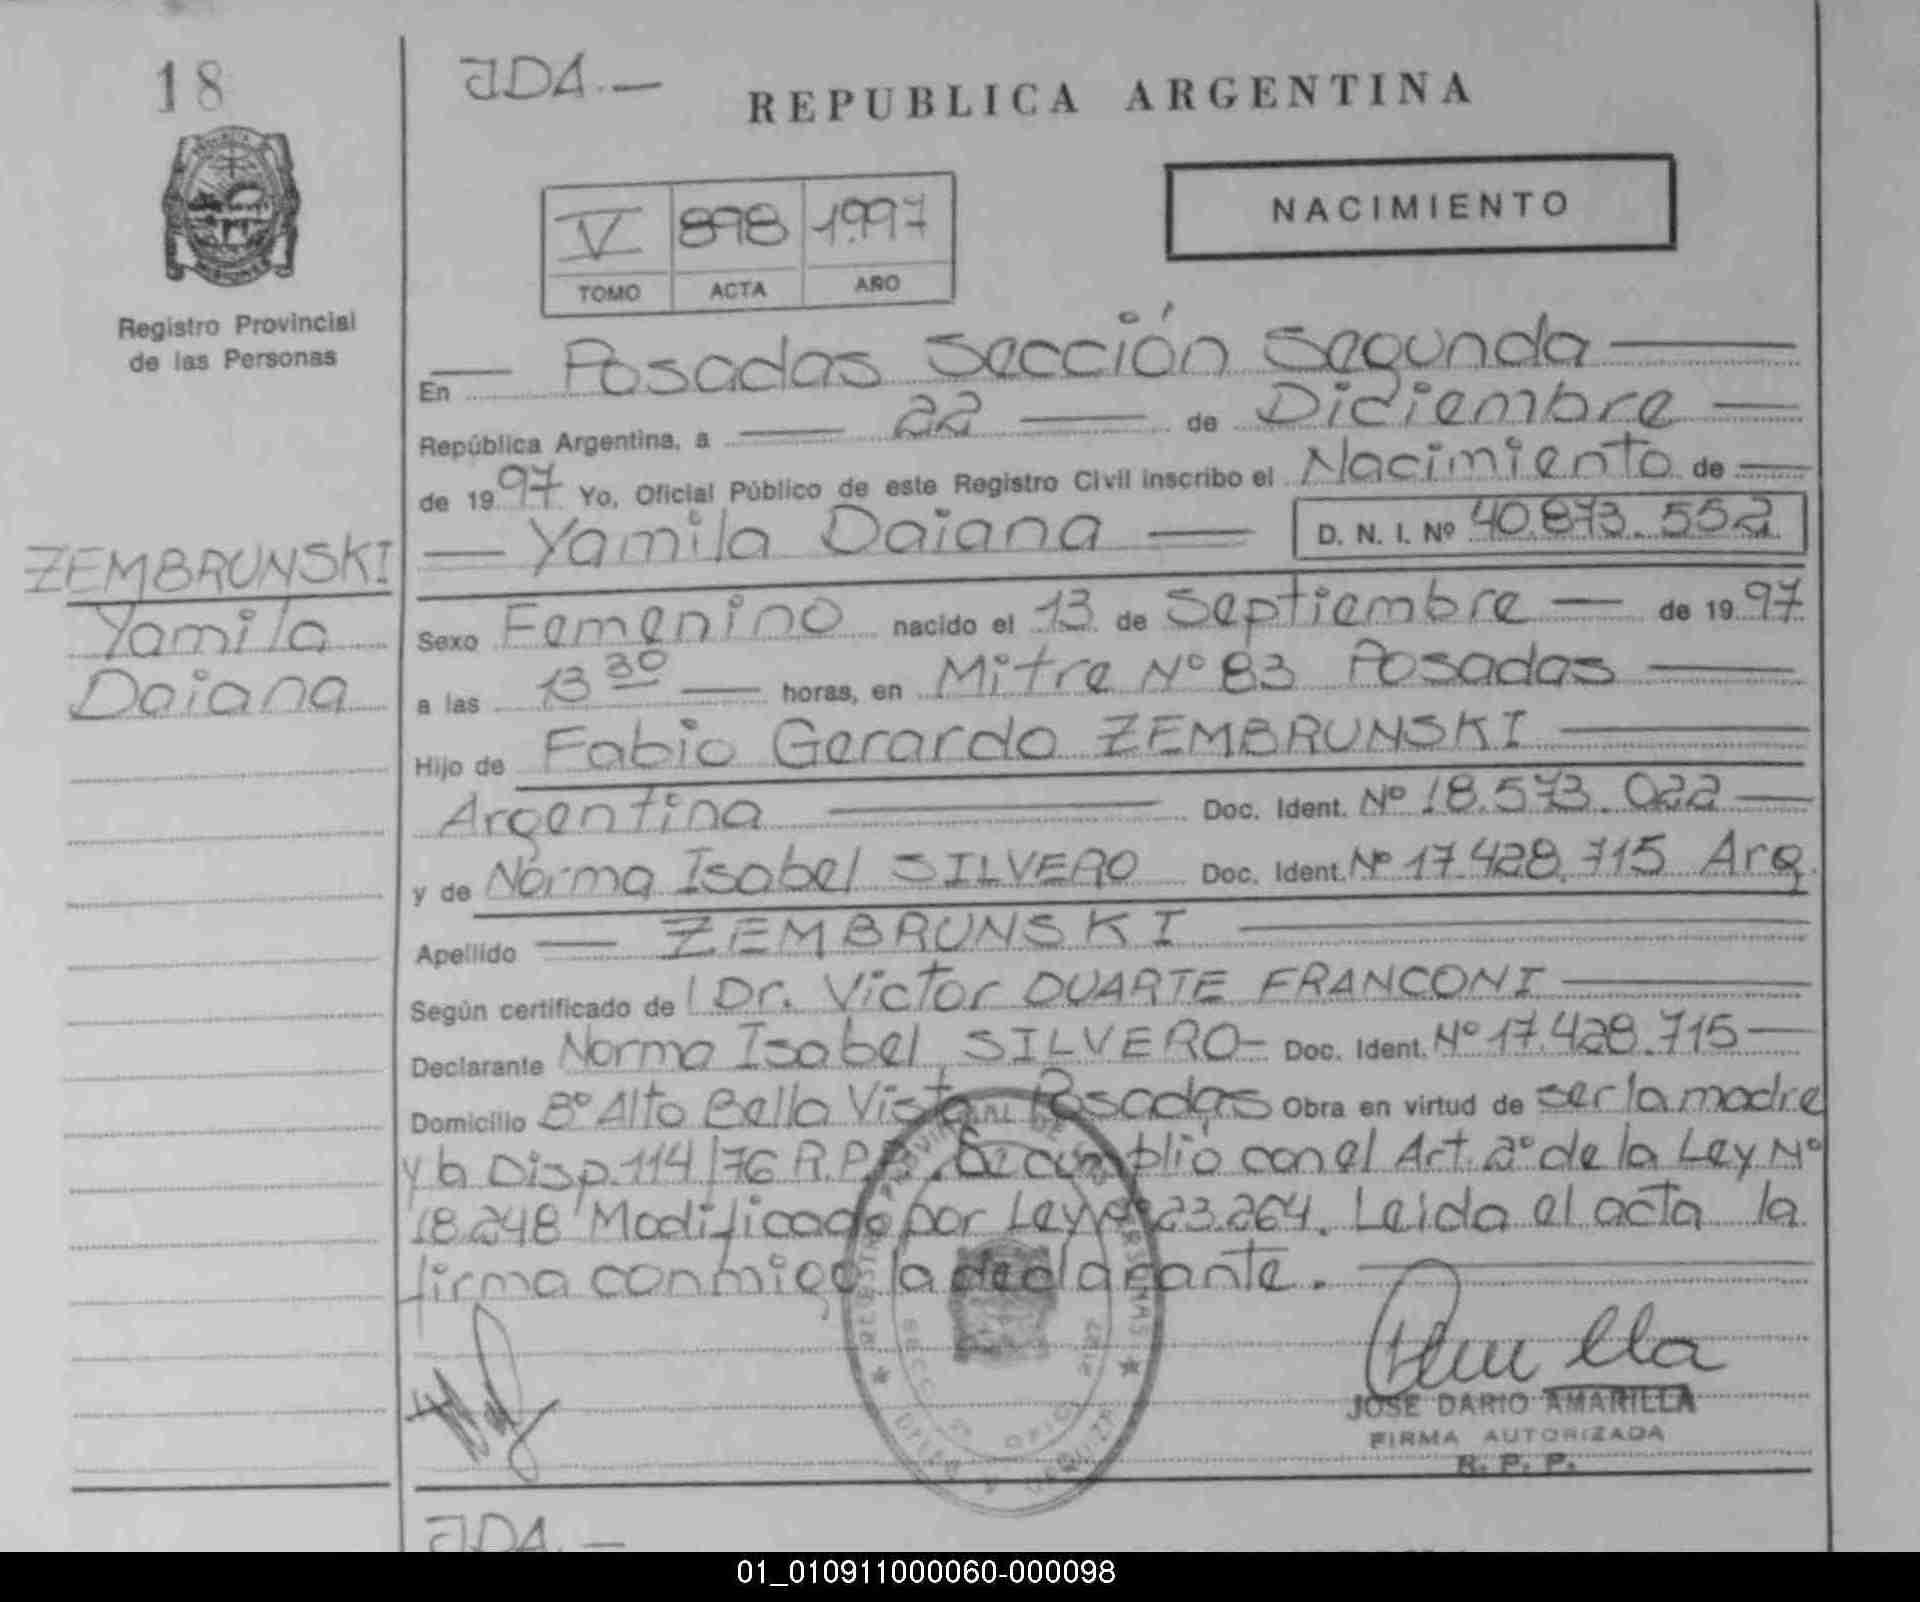 18
JDA.—
REPUBLICA ARGENTINA
V 898 1.997
TOMO ACTA AÑO
NACIMIENTO
Registro Provincial
de las Personas
En — Posadas Sección Segunda —
República Argentina, a — 22 — de Diciembre —
de 1997 Yo, Oficial Público de este Registro Civil inscribo el Nacimiento de —
— Yamila Daiana — D. N. I. Nº 40.873.552
ZEMBRUNSKI
Yamila
Daiana
Sexo Femenino nacido el 13 de Septiembre — de 1997
a las 13 30 — horas, en Mitre Nº 83 Posadas —
Hijo de Fabio Gerardo ZEMBRUNSKI —
Argentina — Doc. Ident. Nº 18.573.022 —
y de Norma Isabel SILVERO Doc. Ident. Nº 17.428.715 Arg.
Apellido — ZEMBRUNSKI —
Según certificado de l Dr. Victor DUARTE FRANCONI —
Declarante Norma Isabel SILVERO — Doc. Ident. Nº 17.428.715 —
Domicilio Bº Alto Bella Vista Posadas Obra en virtud de ser la madre
y la Disp. 114/76 R.P.P. Se cumplió con el Art. 2º de la Ley Nº
18.248 Modificado por Ley Nº 23.264. Leida el acta la
firma conmigo la declarante. —
REGISTRO PROVINCIAL DE LAS PERSONAS
JOSE DARIO AMARILLA
FIRMA AUTORIZADA
R. P. P.
JDA.—
01_010911000060-000098